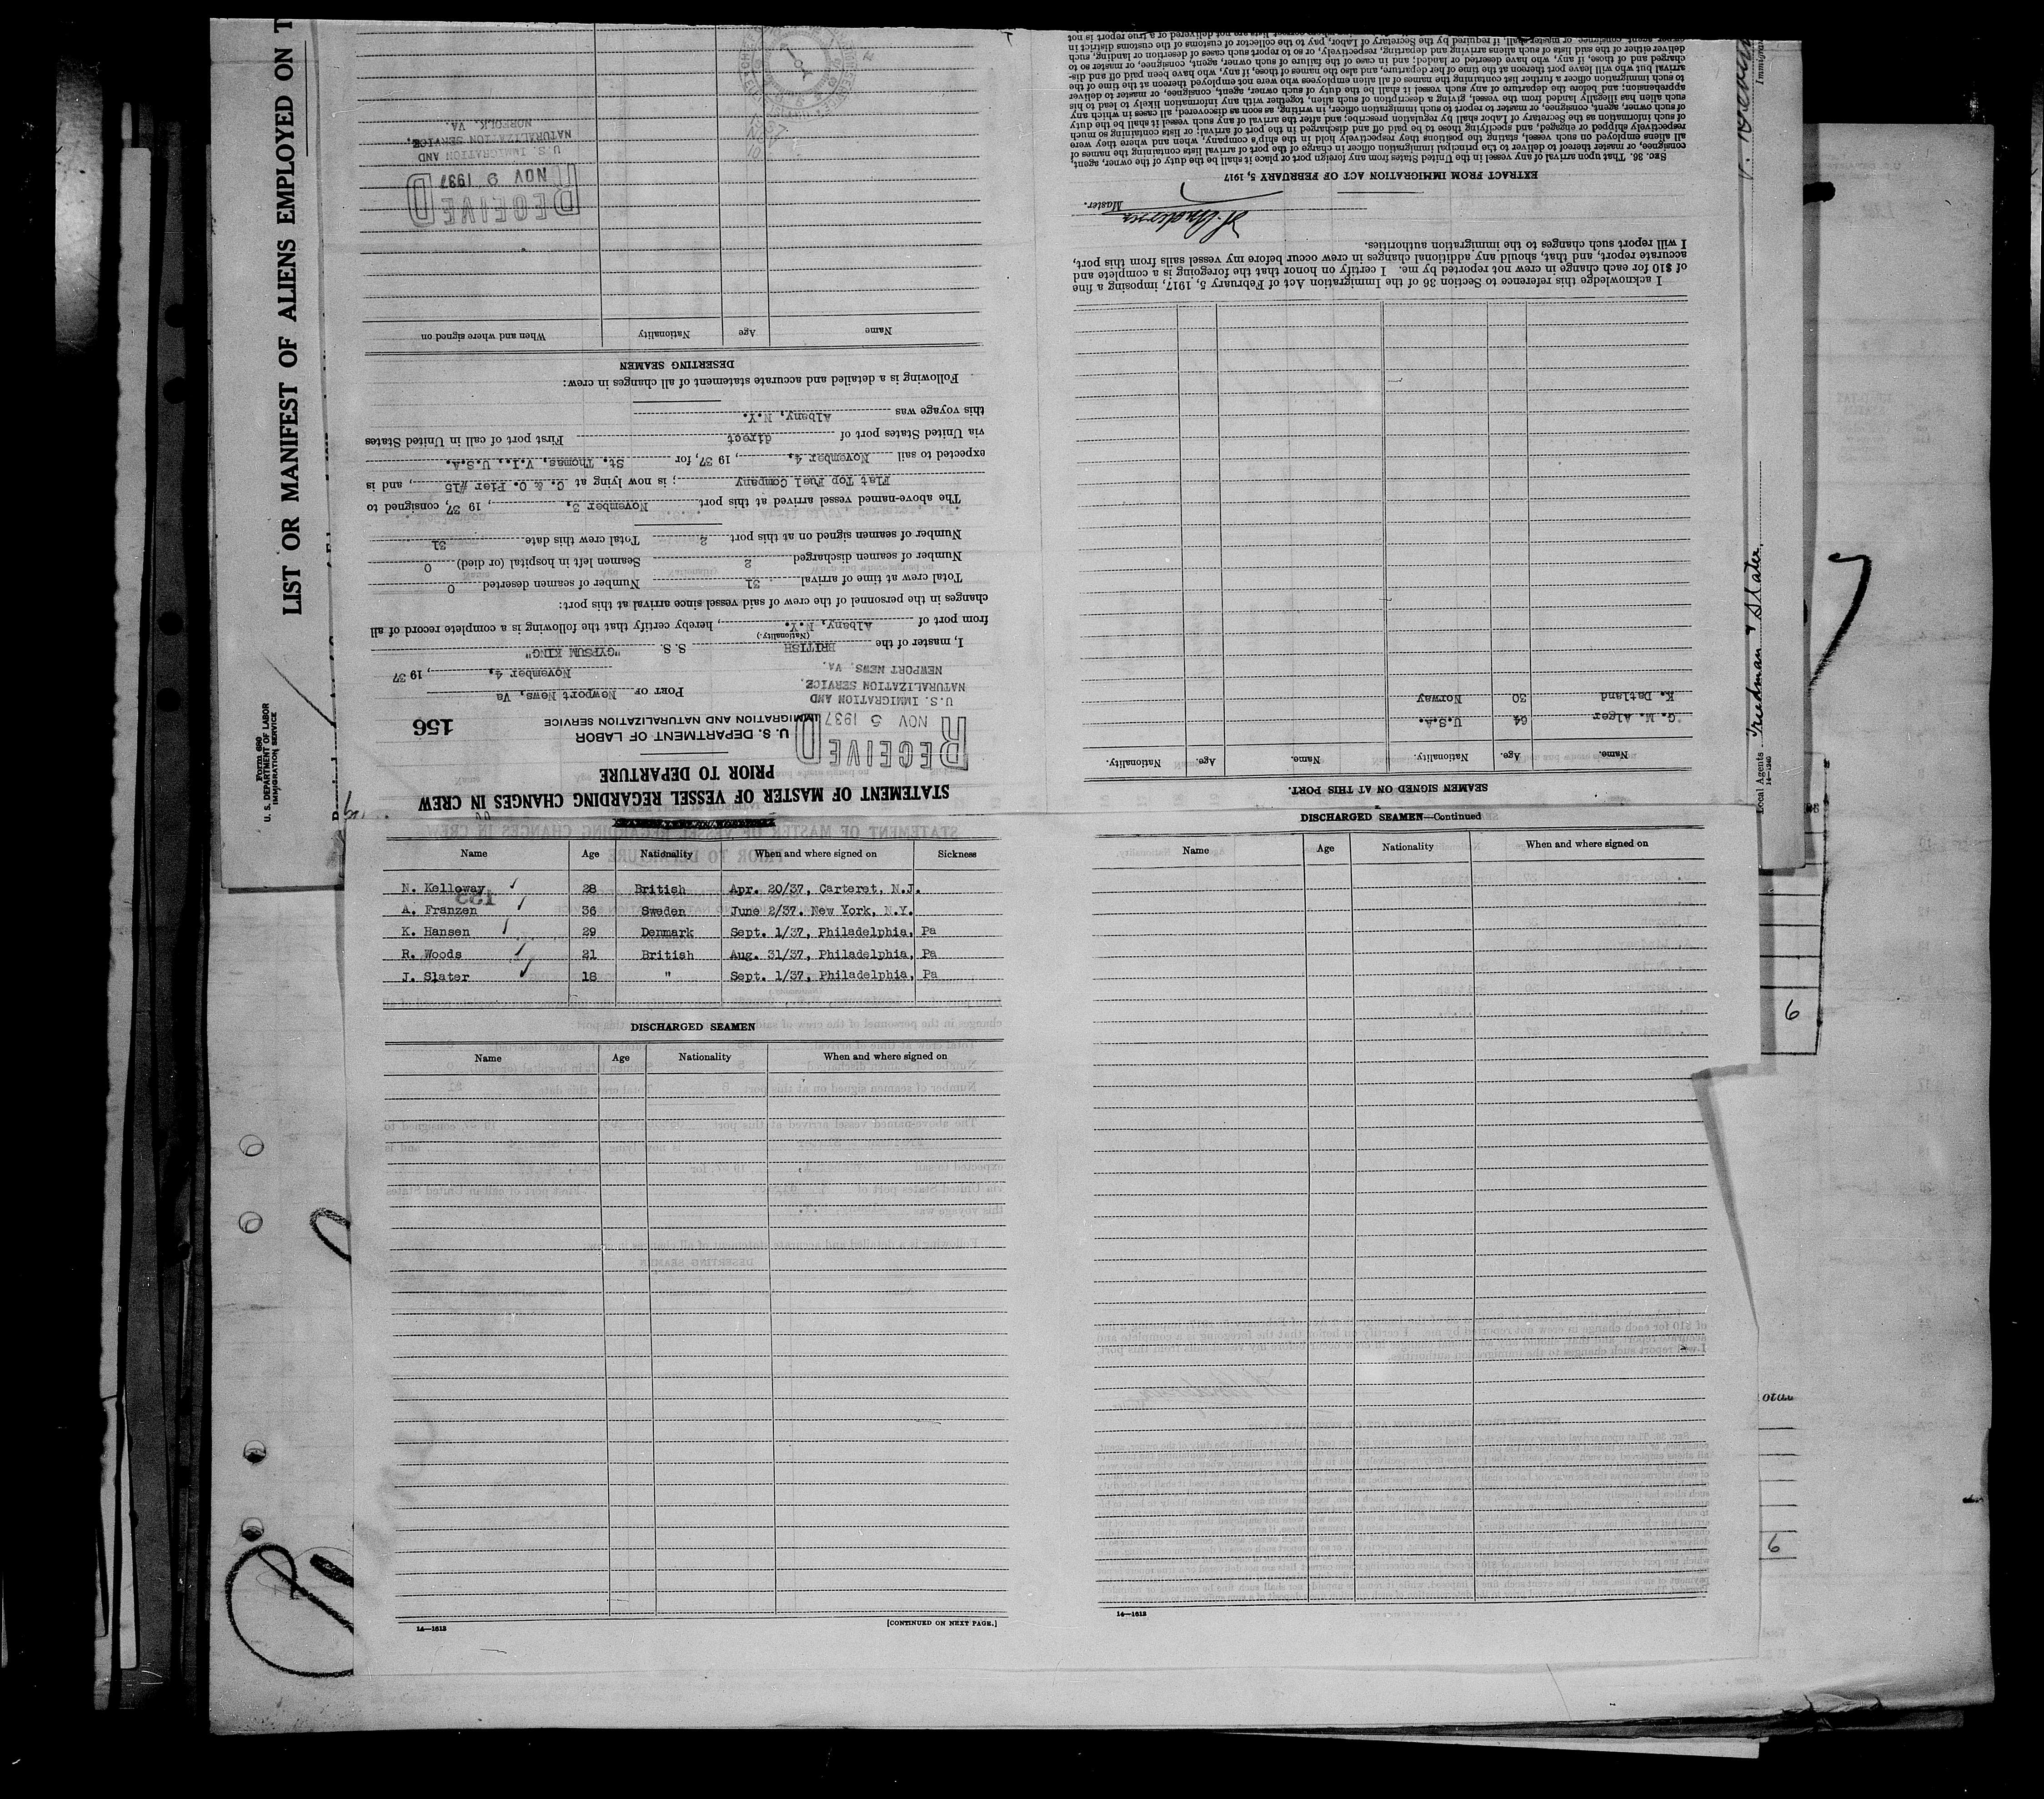 LIST OR MANIFEST OF ALIENS EMPLOYED ON T
Form 680
U. S. DEPARTMENT OF LABOR
IMMIGRATION SERVICE
STATEMENT OF MASTER OF VESSEL REGARDING CHANGES IN CREW
PRIOR TO DEPARTURE
U. S. DEPARTMENT OF LABOR
IMMIGRATION AND NATURALIZATION SERVICE
156
RECEIVED
NOV 5 1937
U. S. IMMIGRATION AND
NATURALIZATION SERVICE.
NEWPORT NEWS. VA.
PORT OF Newport News, Va
November 4, , 19 37
I, master of the BRITISH S. S. "GYPSUM KING"
(Nationality)
from port of Albany, N.Y. , hereby certify that the following is a complete record of all
changes in the personnel of the crew of said vessel since arrival at this port:
Total crew at time of arrival 31 Number of seamen deserted 0
Number of seamen discharged 2 Seamen left in hospital (or died) 0
Number of seamen signed on at this port 2 Total crew this date 31
The above-named vessel arrived at this port November 3, , 19 37, consigned to
Flat Top Fuel Company ; is now lying at C. & O. Pier #15 , and is
expected to sail November 4, , 19 37, for St. Thomas, V.I., U.S.A.
via United States port of direct First port of call in United States
this voyage was Albany, N.Y.
Following is a detailed and accurate statement of all changes in crew:
DESERTING SEAMEN
Name Age Nationality When and where signed on
RECEIVED
NOV 9 1937
U. S. IMMIGRATION AND
NATURALIZATION SERVICE.
NORFOLK. VA.
SEAMEN SIGNED ON AT THIS PORT.
Name. Age. Nationality. Name. Age. Nationality.
G. M. Alger 64 U.S.A.
K. Datland 30 Norway
I acknowledge this reference to Section 36 of the Immigration Act of February 5, 1917, imposing a fine
of $10 for each change in crew not reported by me. I certify on honor that the foregoing is a complete and
accurate report, and that, should any additional changes in crew occur before my vessel sails from this port,
I will report such changes to the immigration authorities.
Master.
EXTRACT FROM IMMIGRATION ACT OF FEBRUARY 5, 1917
SEC. 36. That upon arrival of any vessel in the United States from any foreign port or place it shall be the duty of the owner, agent,
consignee, or master thereof to deliver to the principal immigration officer in charge of the port of arrival lists containing the names of
all aliens employed on such vessel, stating the positions they respectively hold in the ship's company, when and where they were
respectively shipped or engaged, and specifying those to be paid off and discharged in the port of arrival; or lists containing so much
of such information as the Secretary of Labor shall by regulation prescribe; and after the arrival of any such vessel it shall be the duty
of such owner, agent, consignee, or master to report to such immigration officer, in writing, as soon as discovered, all cases in which any
such alien has illegally landed from the vessel, giving a description of such alien, together with any information likely to lead to his
apprehension; and before the departure of any such vessel it shall be the duty of such owner, agent, consignee, or master to deliver
to such immigration officer a further list containing the names of all alien employees who were not employed thereon at the time of the
arrival but who will leave port thereon at the time of her departure, and also the names of those, if any, who have been paid off and dis-
charged and of those, if any, who have deserted or landed; and in case of the failure of such owner, agent, consignee, or master so to
deliver either of the said lists of such aliens arriving and departing, respectively, or so to report such cases of desertion or landing, such
owner, agent, consignee, or master shall, if required by the Secretary of Labor, pay to the collector of customs of the customs district in
Local Agents Friedman & Slater.
14—1240
Name Age Nationality When and where signed on Sickness
N. Kelloway 28 British Apr. 20/37, Carteret, N.J.
A. Franzen 36 Sweden June 2/37. New York, N.Y.
K. Hansen 29 Denmark Sept. 1/37, Philadelphia, Pa
R. Woods 21 British Aug. 31/37, Philadelphia, Pa
J. Slater 18 " Sept. 1/37, Philadelphia, Pa
DISCHARGED SEAMEN
Name Age Nationality When and where signed on
14—1613
[CONTINUED ON NEXT PAGE.]
DISCHARGED SEAMEN—Continued
Name Age Nationality When and where signed on
14—1613
6
6